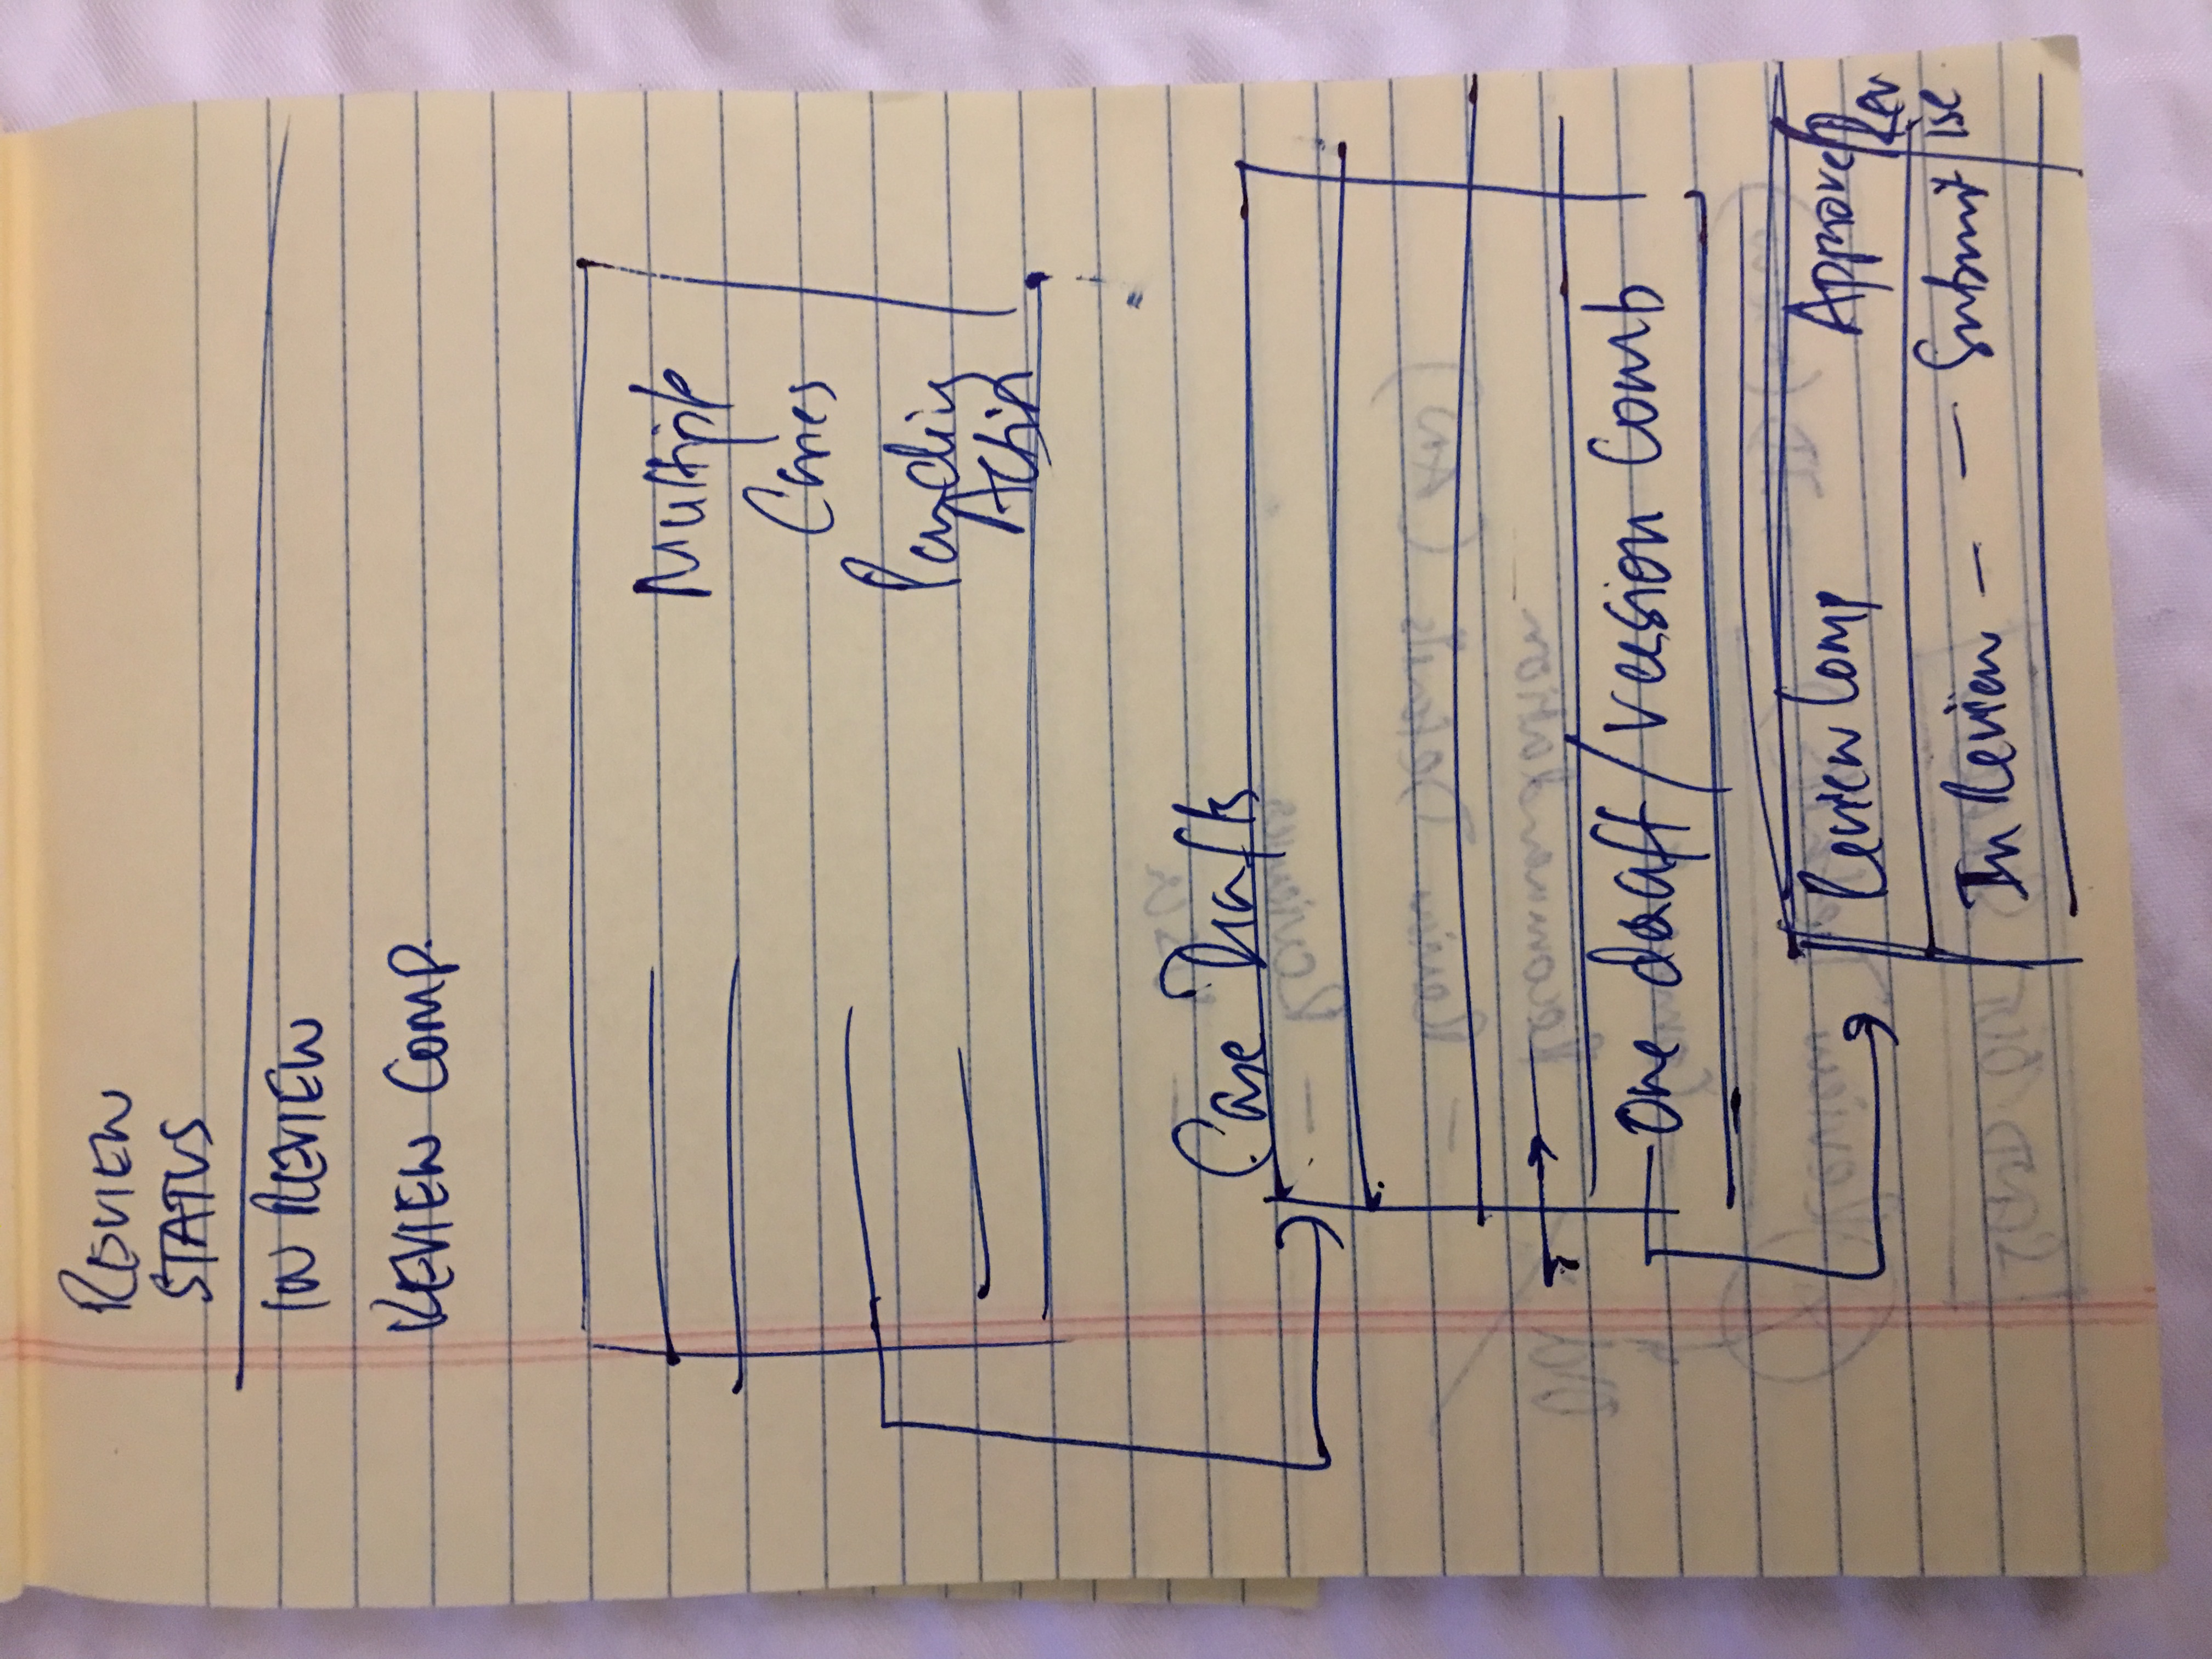 REVIEW
STATUS
IN REVIEW
REVIEW COMP.
Multiple
Cases
Pending
Action
Case Drafts
One draft/Version Comb
Review Comp Approve Rev
ise
In Review - - Submit